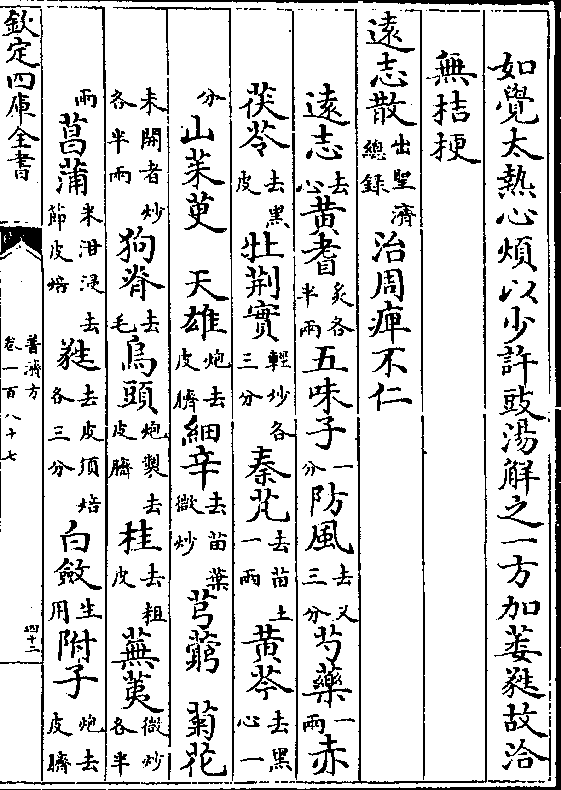 如覺太熱心煩以少許豉湯解之一方加萎蕤故治
無桔梗
遠志散出聖濟總録治周痺不仁
遠志去心黄耆炙各半兩五味子一分防風去乂三分芍藥一兩赤
茯苓去黑皮牡荆實輕炒各三分秦艽去苗土一兩黄芩去黑心一
分山茱萸天雄炮去皮臍細辛去苗葉微炒芎藭菊花
未開者炒各半兩狗脊去毛烏頭炮製去皮臍桂去粗皮蕪荑微炒各半
兩菖蒲米泔浸去節皮焙蕤去皮須焙各三分白斂生用附子炮去皮臍
欽定四庫全書
普濟方
卷一百八十七
四十二